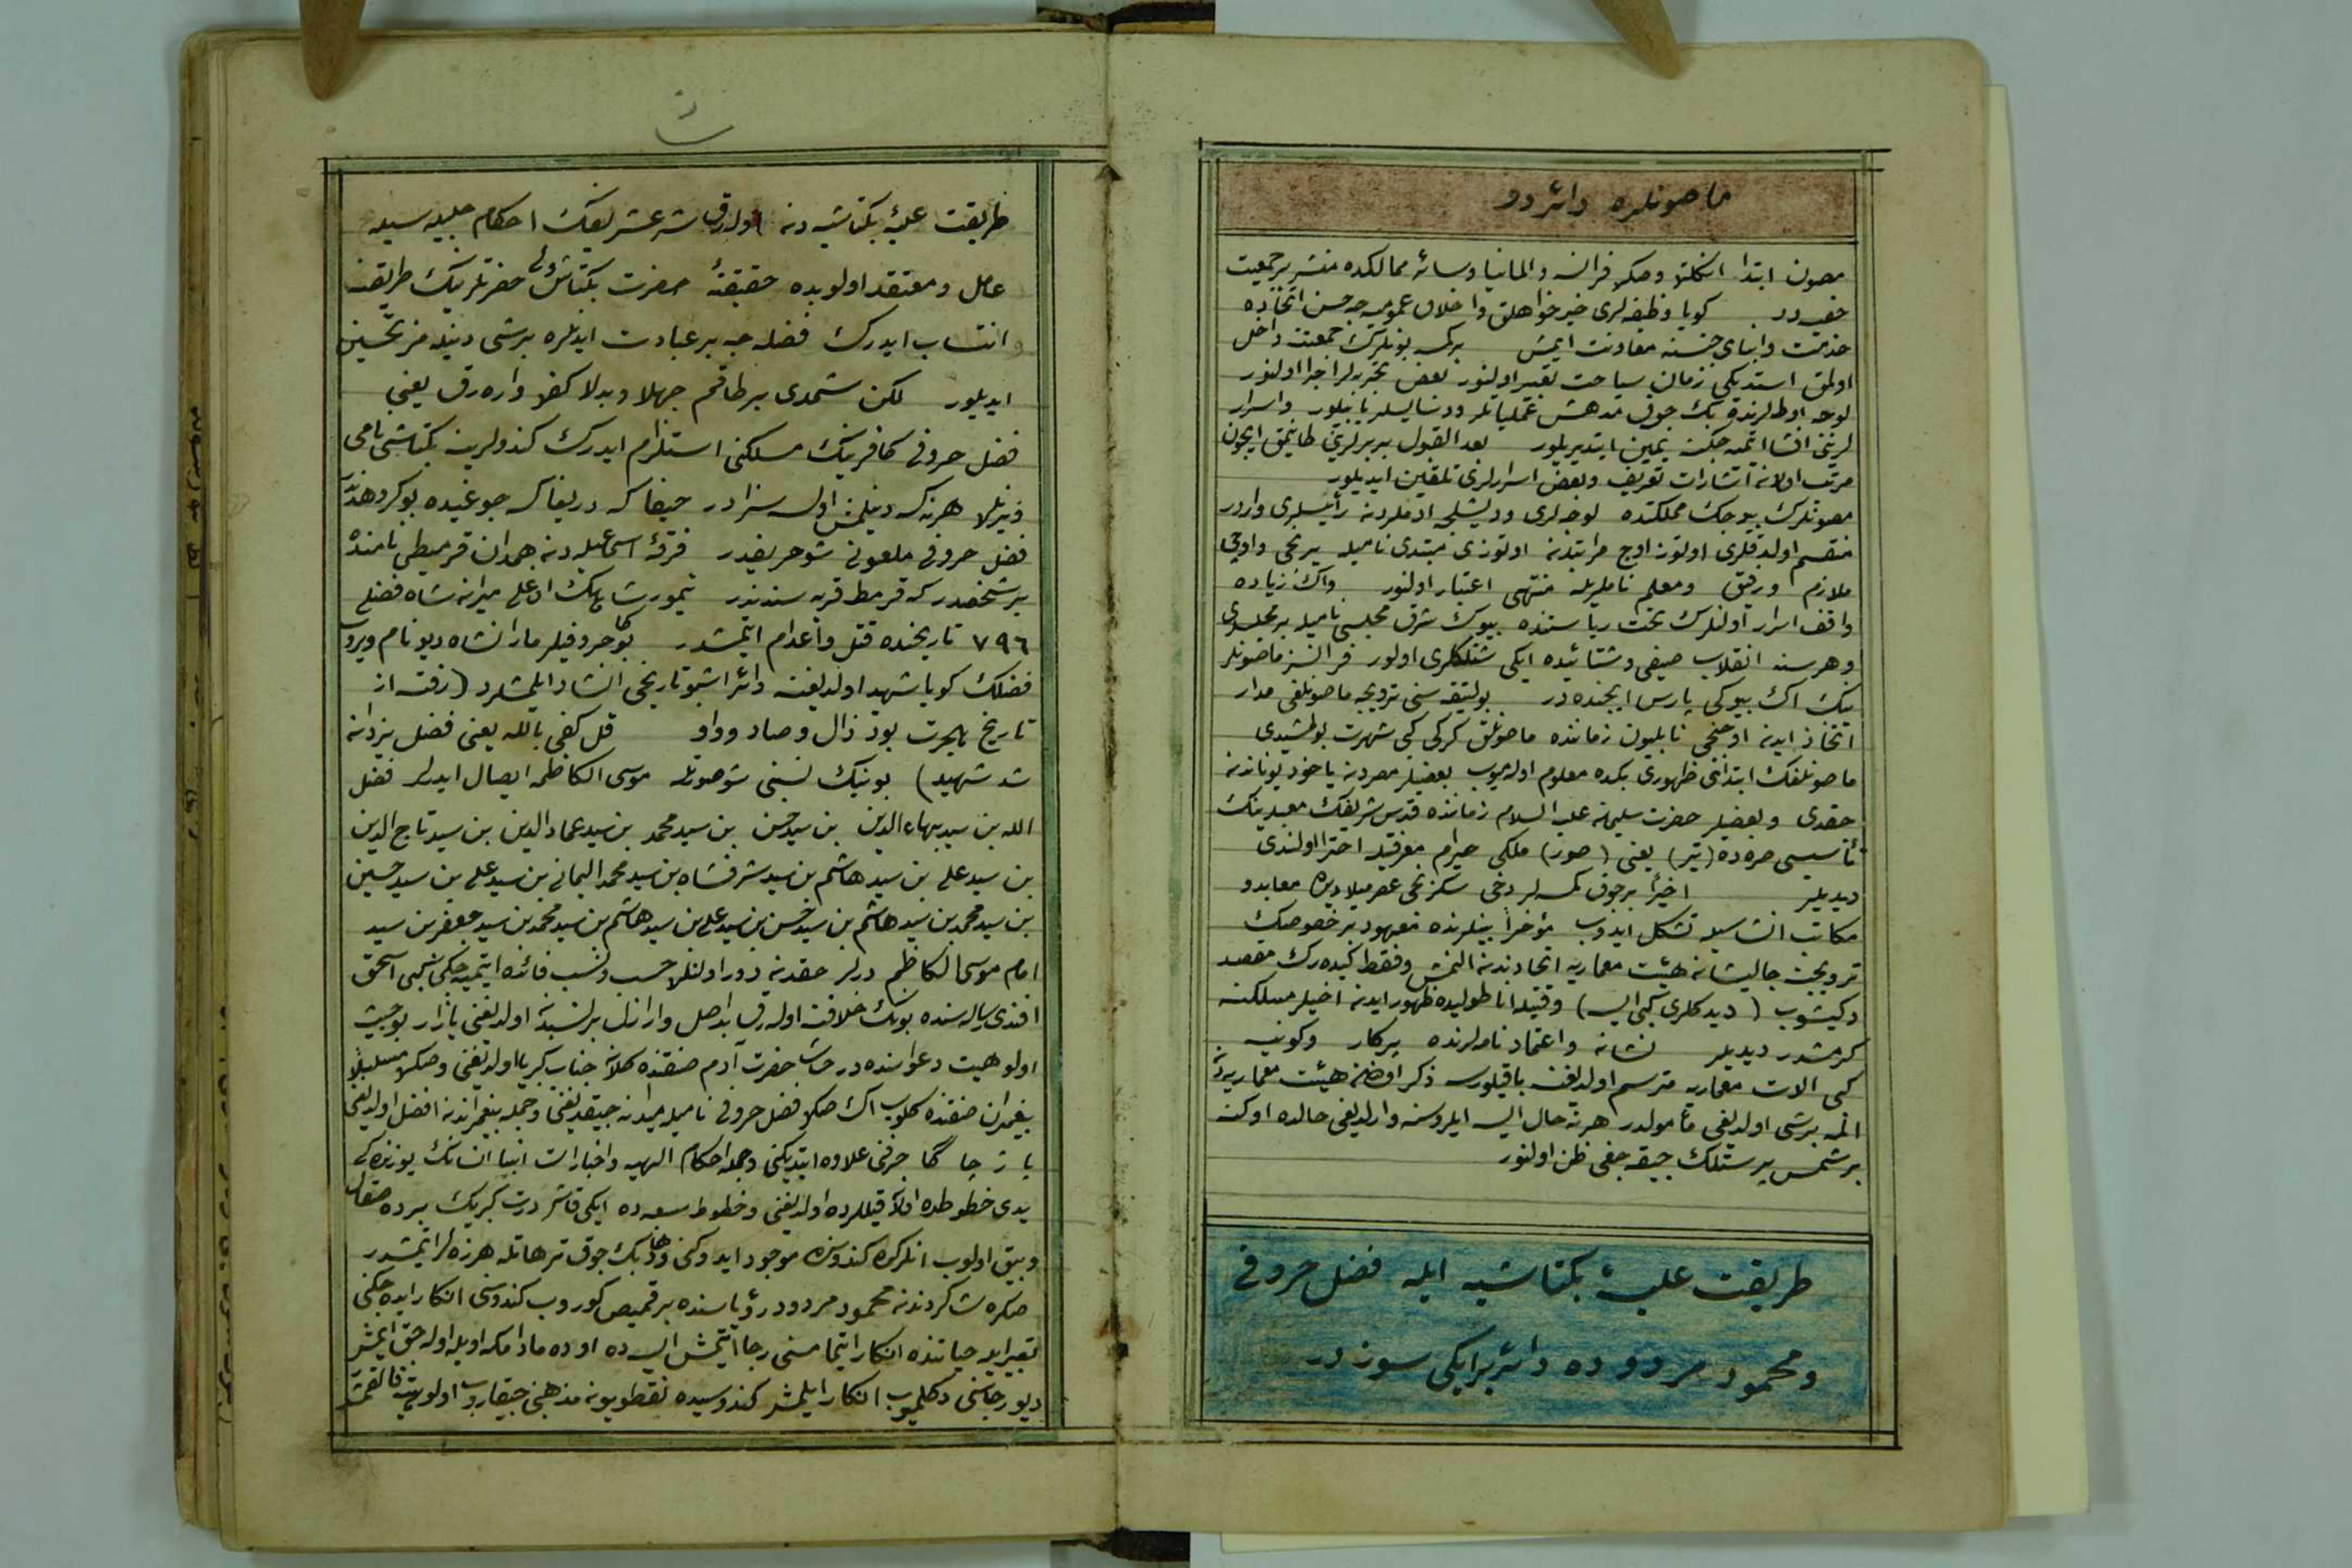 ماصونلره دائردر
مصون ابتدا انكلتره وصكره فرانسه والمانيا وسائر ممالكده منتشر برجمعيت
خفيه در كويا وظيفه لرى خيرخواهلق واخلاق عموميه جه حسن اتخاذه
خدمت وابناى جنسنه معاونت ايمش بركمسه بونلرك جمعيتنه داخل
اولمق استديكى زمان سياحت تعبير اولنور بعض تجربه لر اجرا اولنور
لوجه اوطه لرنده پك چوق مدهش عملياتلر ودسايسلر ياپيلور واسرار
لرينى افشا ايتميه جكنه يمين ايتديريلور بعد القبول بربرلرينى طانيمق ايچون
مرتب اولان اشارات تعريف وبعض اسرارلرى تلقين ايديلور
مصونلرك بيوجك مملكتده لوجه لرى ودينلى ادملردن رئيسلرى واردر
منقسم اولدقلرى اوتوز اوچ مراتبدن اوتوزى مبتدى ناميله برنجى وايكنجى
ملازم ورفيق ومعلم ناملريله منتهى اعتبار اولنور واك زياده
واقف اسرار اولنلرك تحت رياستنده بيوك شرق مجلسى ناميله بر مجلسلرى
وهر سنه انقلاب صيفى وشتائيده ايكى شنلكلرى اولور فرانسز ماصونلر
ينك اك بيوكى پارس ايچنده در پولتيقه سنى ترويجه ماصونلغى مدار
اتخاذ ايدن اوچنجى ناپليون زماننده ماصونلق كركى كبى شهرت بولمشيدى
ماصونلغك ابتداى ظهورى پكده معلوم اولميوب بعضيلر مصردن ياخود يوناندن
چقدى وبعضيلر حضرت سليمان عليه السلام زماننده قدس شريفك معبدينك
تأسيسى صره ده (تير) يعنى (صور) ملكى حيرام معرفتيله اخترا اولندى
ديديلر اخيراً برچوق كمسه لر دخى سكزنجى عصر ميلاديده معابد و
مكاتب انشاسيله تشكل ايدوب مؤخراً بينلرنده معهود بر خصوصك
ترويجنه چاليشان هيئت معماريه اتحادندن النمش وفقط كيده رك مقصد
دكيشوب (ديدكلرى كبى ايسه) وقتيله اناطوليده ظهور ايدن اخيلر مسلكنه
كرمشدر ديديلر نشانه واعتماد نامه لرنده پركار وكونيه
كبى الات معماريه مترسم اولديغنه باقيلورسه ذكر اولنان هيئت معماريه دن
المه برشى اولديغى مأمولدر هرنه حال ايسه ايلروسنه واريلديغى حالده اوكنه
بر شمس پرستلك چيقه جغى ظن اولنور
طريقت عليهٔ بكتاشيه ايله فضل حروفى
ومحمود مردوده دائر بر ايكى سوزدر
طريقت عليهٔ بكتاشيه دن اوله رق شرع شريفك احكام جليله سيله
عامل ومعتقد اولوبده حقيقةً حضرت بكتاش ولى حضرتلرينك طريقنه
انتساب ايدرك فضله جه بر عبادت ايدنلره برشى دينلمز تحسين
ايديلور لكن شمدى بر طاقم جهلا وبدلا كفره واره رق يعنى
فضل حروفى كافرينك مسلكنى استلزام ايدرك كندولرينه بكتاشى نامى
ويرنلره هرنه كه دينلمش اولسه سزادر حيفا كه دريغا كه چوغيده بوكروهدندر
فضل حروفى ملعونى شو حريفدر فرقهٔ اسماعيليه دن همدان قرميطى نامنده
بر شخصدر كه قرمط قريه سندندر تيمور شاهك اوغلى ميران شاه فضلى
٧٩٦ تاريخنده قتل واعدام ايتمشدر بوكا حروفيلر ماران شاه ديو نام ويروب
فضلك كويا شهيد اولديغنه دائر اشبو تاريخى انشاد ايلمشلردر (رفته از
تاريخ هجرت بود ذال وصاد وواو قل كفى بالله يعنى فضل يزدان
شد شهيد) بونيك نسبنى شو صورتله موسى الكاظمه ايصال ايدرلر فضل
الله بن سيد بهاء الدين بن سيد حسن بن سيد محمد بن سيد عماد الدين بن سيد تاج الدين
بن سيد على بن سيد هاشم بن سيد شرفشاه بن سيد محمد اليمانى بن سيد على بن سيد حسين
بن سيد محمد بن سيد هاشم بن سيد حسن بن سيد على بن سيد هاشم بن سيد محمد بن سيد جعفر بن سيد
امام موسى الكاظم درلر حقدن دور اولنلره حسب ونسب فائده ايتميه جكى كبى اسحق
افندى رساله سنده بونك خلافنه اوله رق بداصل واراذل برنسبدن اولديغنى يازار بو خبيث
الوهيت دعواسنده در حاشا حضرت آدم صفتنده كلان جناب كبريا اولديغنى وصكره مسلسلاً
پيغمبران صفتنده كلوب اك صكره فضل حروفى ناميله ميدانه چيقديغنى وجمله پيغمبراندن افضل اولديغى
پا ژ چا كا حرفنى علاوه ايتديكنى وجمله احكام الهيه واخبارات انبيا انسانك يوزنده كى
يدى خطوطده اولان قيللرده اولديغنى وخطوط سبعه ده ايكى قاش درت كرپيك برده صقال
وبيق اولوب انلرك كندوسنده موجود ايدوكنى ودها پك چوق ترهاتله هرزه لر ايتمشدر
صكره شاكردندن محمود مردود رؤياسنده بر قميص كوروب كندوسنى انكار ايده جكنى
تعبير ايله حياتنده انكار ايتمامسنى رجا ايتمش ايسه ده او ده مادامكه اويله اوله جق ايتمش
ديو رجاسنى دكلميوب انكار ايلمش كندوسيده نقطويون مذهبنى چيقاروب الوهيته قالقمش